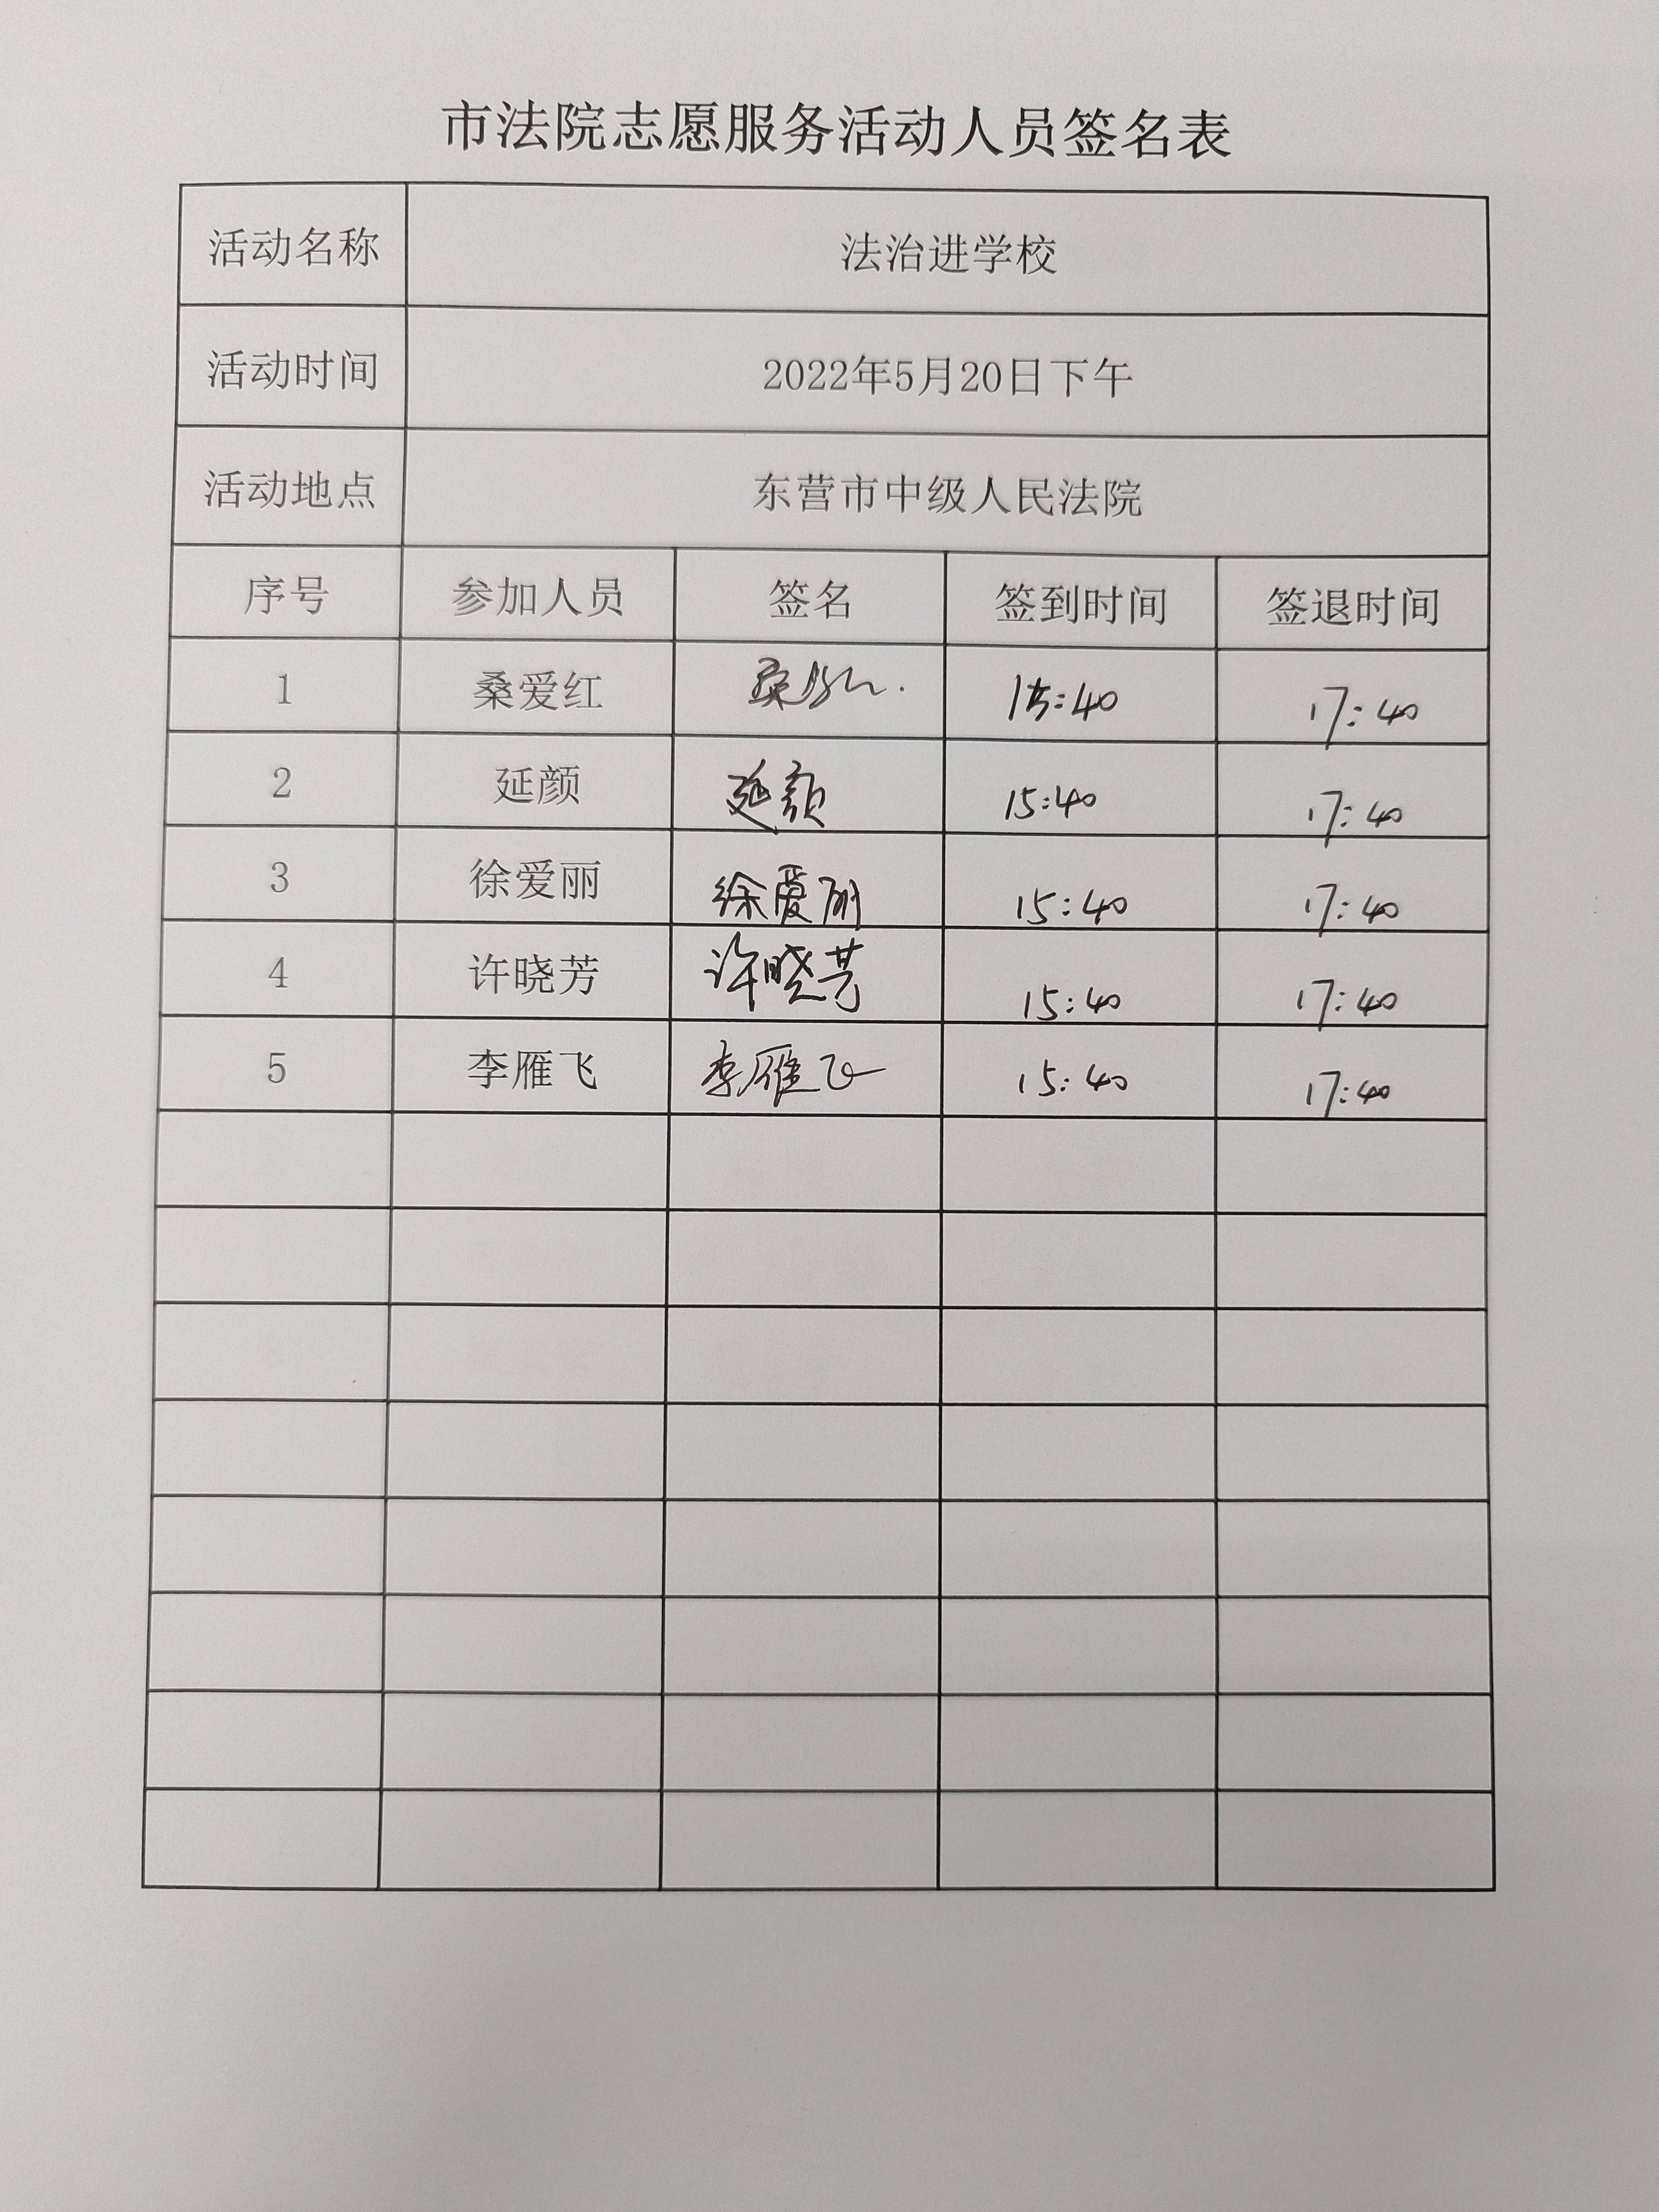 市法院志愿服务活动人员签名表
活动名称 法治进学校
活动时间 2022年5月20日下午
活动地点 东营市中级人民法院
序号 参加人员 签名 签到时间 签退时间
1 桑爱红 桑爱红 15:40 17:40
2 延颜 延颜 15:40 17:40
3 徐爱丽 徐爱丽 15:40 17:40
4 许晓芳 许晓芳 15:40 17:40
5 李雁飞 李雁飞 15:40 17:40